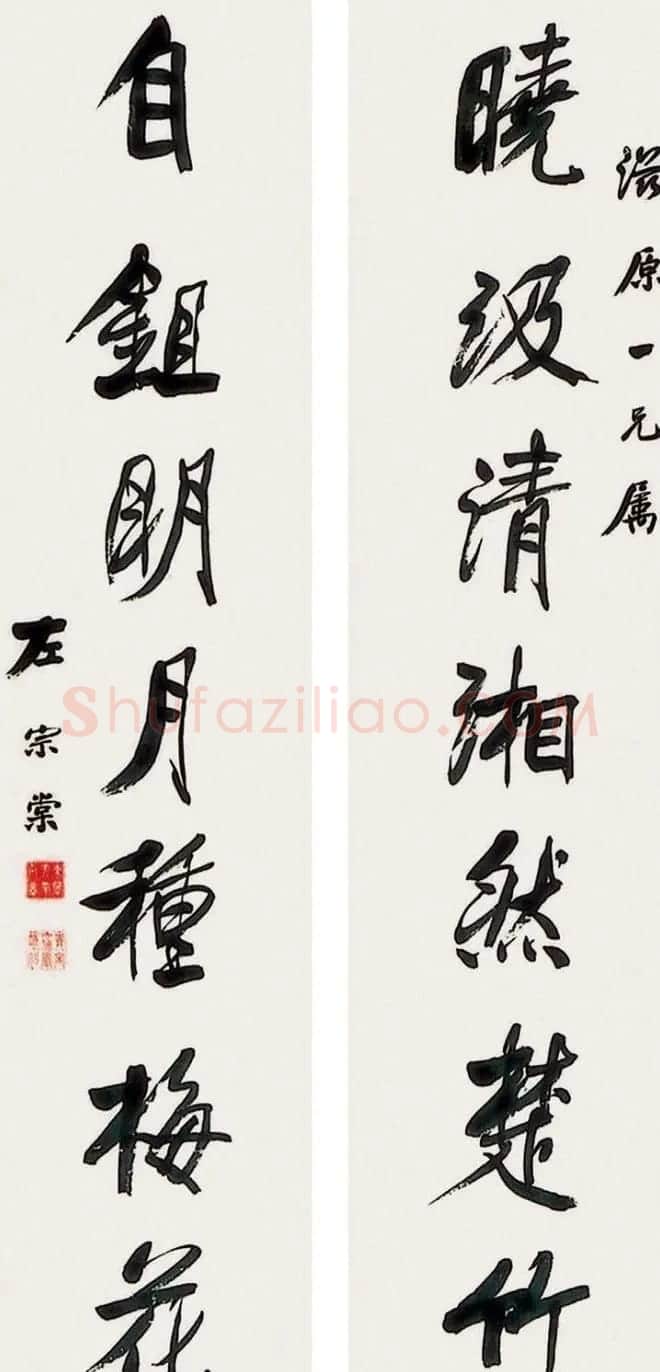 滋原一兄属
曉汲清湘然楚竹
自鉏明月種梅花
左宗棠
Shufaziliao.com